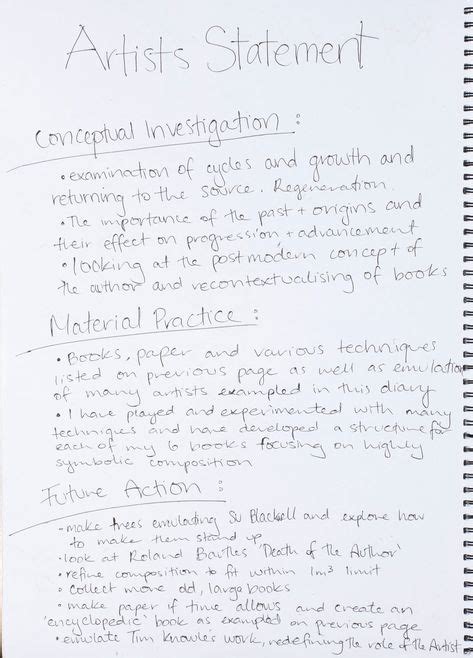 Artists Statement
Conceptual Investigation :
• examination of cycles and growth and
returning to the source. Regeneration.
• The importance of the past + origins and
their effect on progression + advancement
• looking at the postmodern concept of
the author and recontextualising of books
Material Practice :
• Books, paper and various techniques
listed on previous page as well as emulation
of many artists exampled in this diary
• I have played and experimented with many
techniques and have developed a structure for
each of my 6 books focusing on highly
symbolic composition
Future Action :
- make trees emulating Su Blackwell and explore how
to make them stand up
• look at Roland Barthes 'Death of the Author'
• refine composition to fit within 1m³ limit
• collect more old, large books
• make paper if time allows and create an
'encyclopedic' book as exampled on previous page
• emulate Tim Knowles work, redefining the role of the Artist